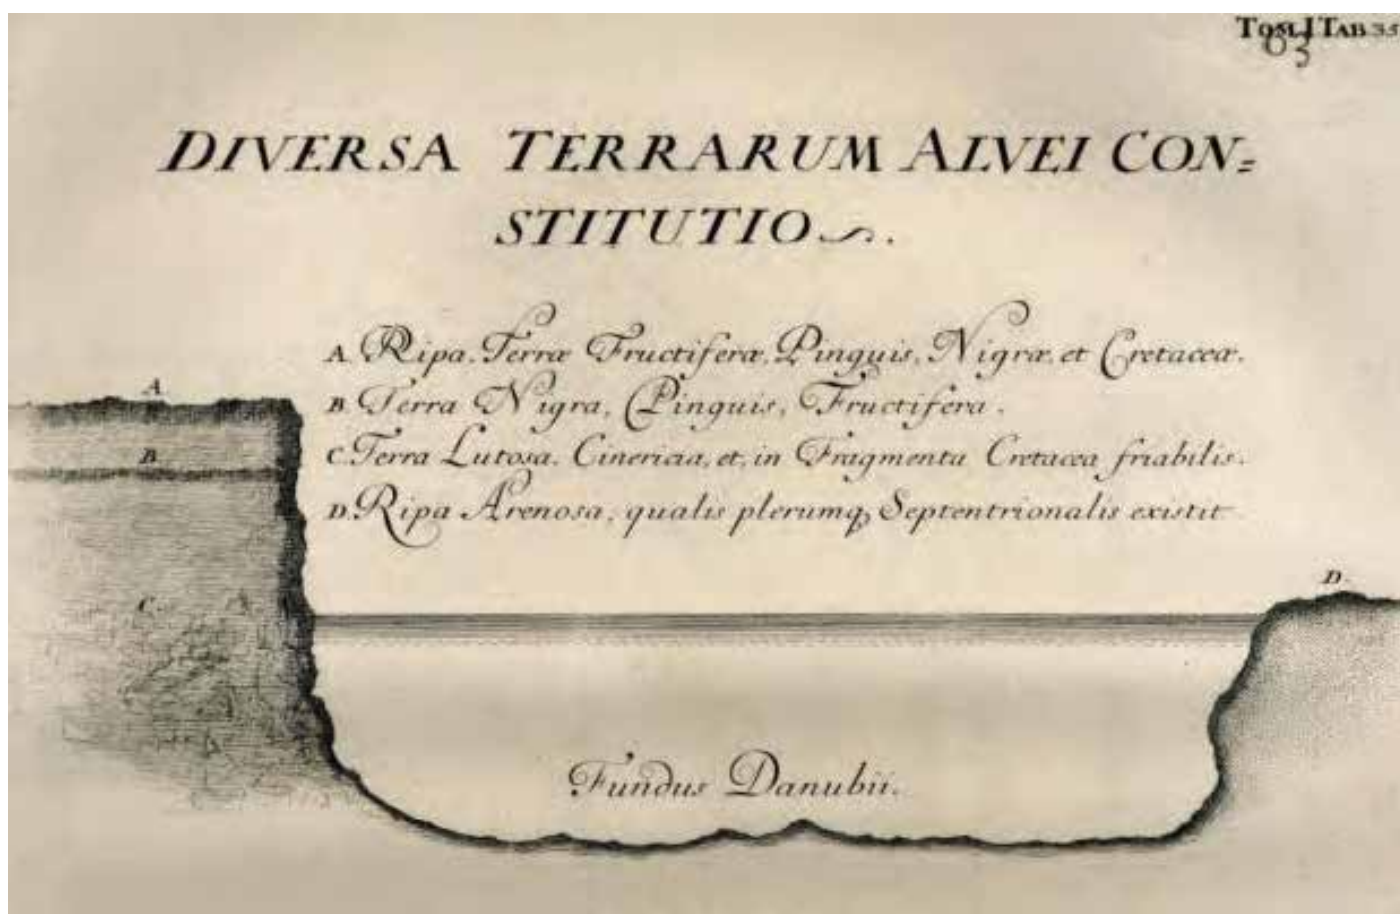 TOM. I TAB. 35
63
DIVERSA TERRARUM ALVEI CON=
STITUTIO.
A. Ripa. Terræ Fructiferæ, Pinguis, Nigræ, et Cretaceæ.
A
B. Terra Nigra, Pinguis, Fructifera.
B
C. Terra Lutosa. Cinericia, et, in Fragmenta Cretacea friabilis.
D. Ripa Arenosa, qualis plerumq Septentrionalis existit
D.
C.
Fundus Danubii.